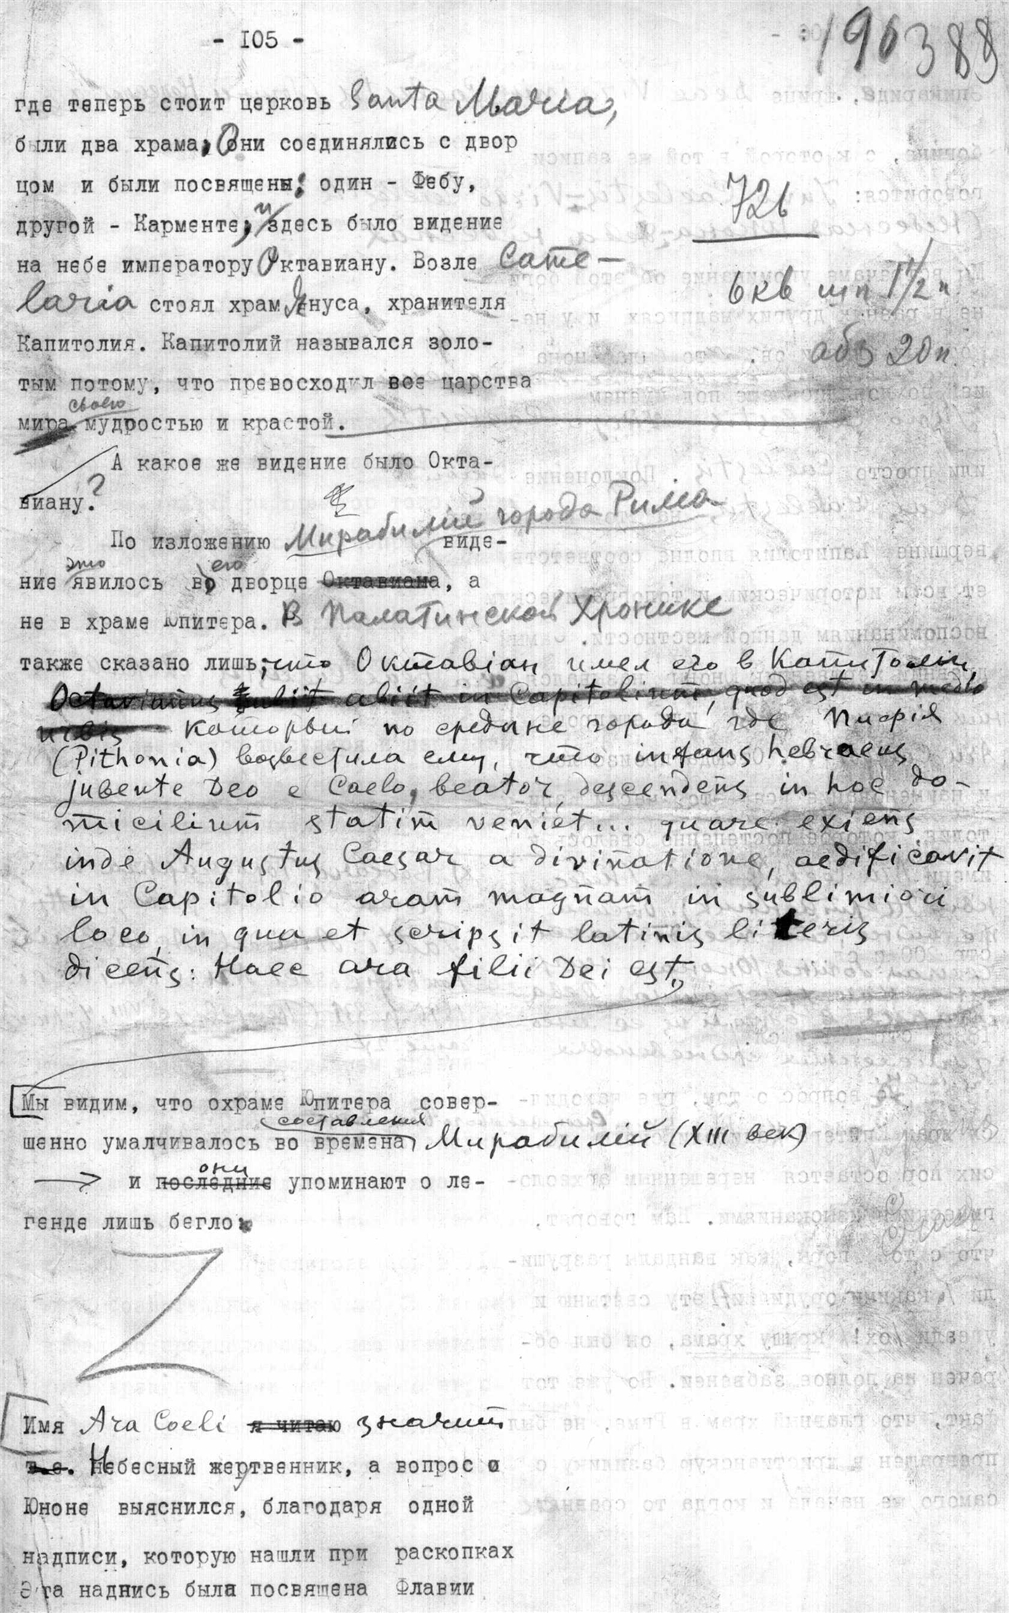 - 105 -
190388
где теперь стоит церковь Santa Maria,
были два храма; Они соединялись с двор
цом и были посвящены: один - Фебу,
другой - Карменте; и здесь было видение
726
на небе императору Октавиану. Возле Came-
6 кв шп 1 1/2 п
laria стоял храм Януса, хранителя
Капитолия. Капитолий назывался золо-
абз 20 п
тым потому, что превосходил все царства
своею
мира мудростью и крастой.
А какое же видение было Окта-
виану?
По изложению Мирабилий города Рима виде-
это его
ние явилось во дворце Октавиана, а
не в храме Юпитера. В Палатинской Хронике
также сказано лишь, что Октавіан имел его в Капитоліи,
Octavianus abiit in Capitolinum, quod est in medio
urbis который по средине города, где Пифія
(Pithonia) возвестила ему, что infans hebraeus
jubente Deo e Caelo, beator, descendens in hoc do-
micilium statim veniet... quare exiens
inde Augustus Caesar a divinatione, aedificavit
in Capitolio aram magnam in sublimiori
loco, in qua et scripsit latinis literis
dicens: Haec ara filii Dei est.
Мы видим, что охраме Юпитера совер-
составления
шенно умалчивалось во времена Мирабилій (XIII век)
они
и последние упоминают о ле-
генде лишь бегло.
Имя Ara Coeli я читаю значит
т.е. Небесный жертвенник, а вопрос о
Юноне выяснился, благодаря одной
надписи, которую нашли при раскопках
Эта наднись была посвящена Флавии